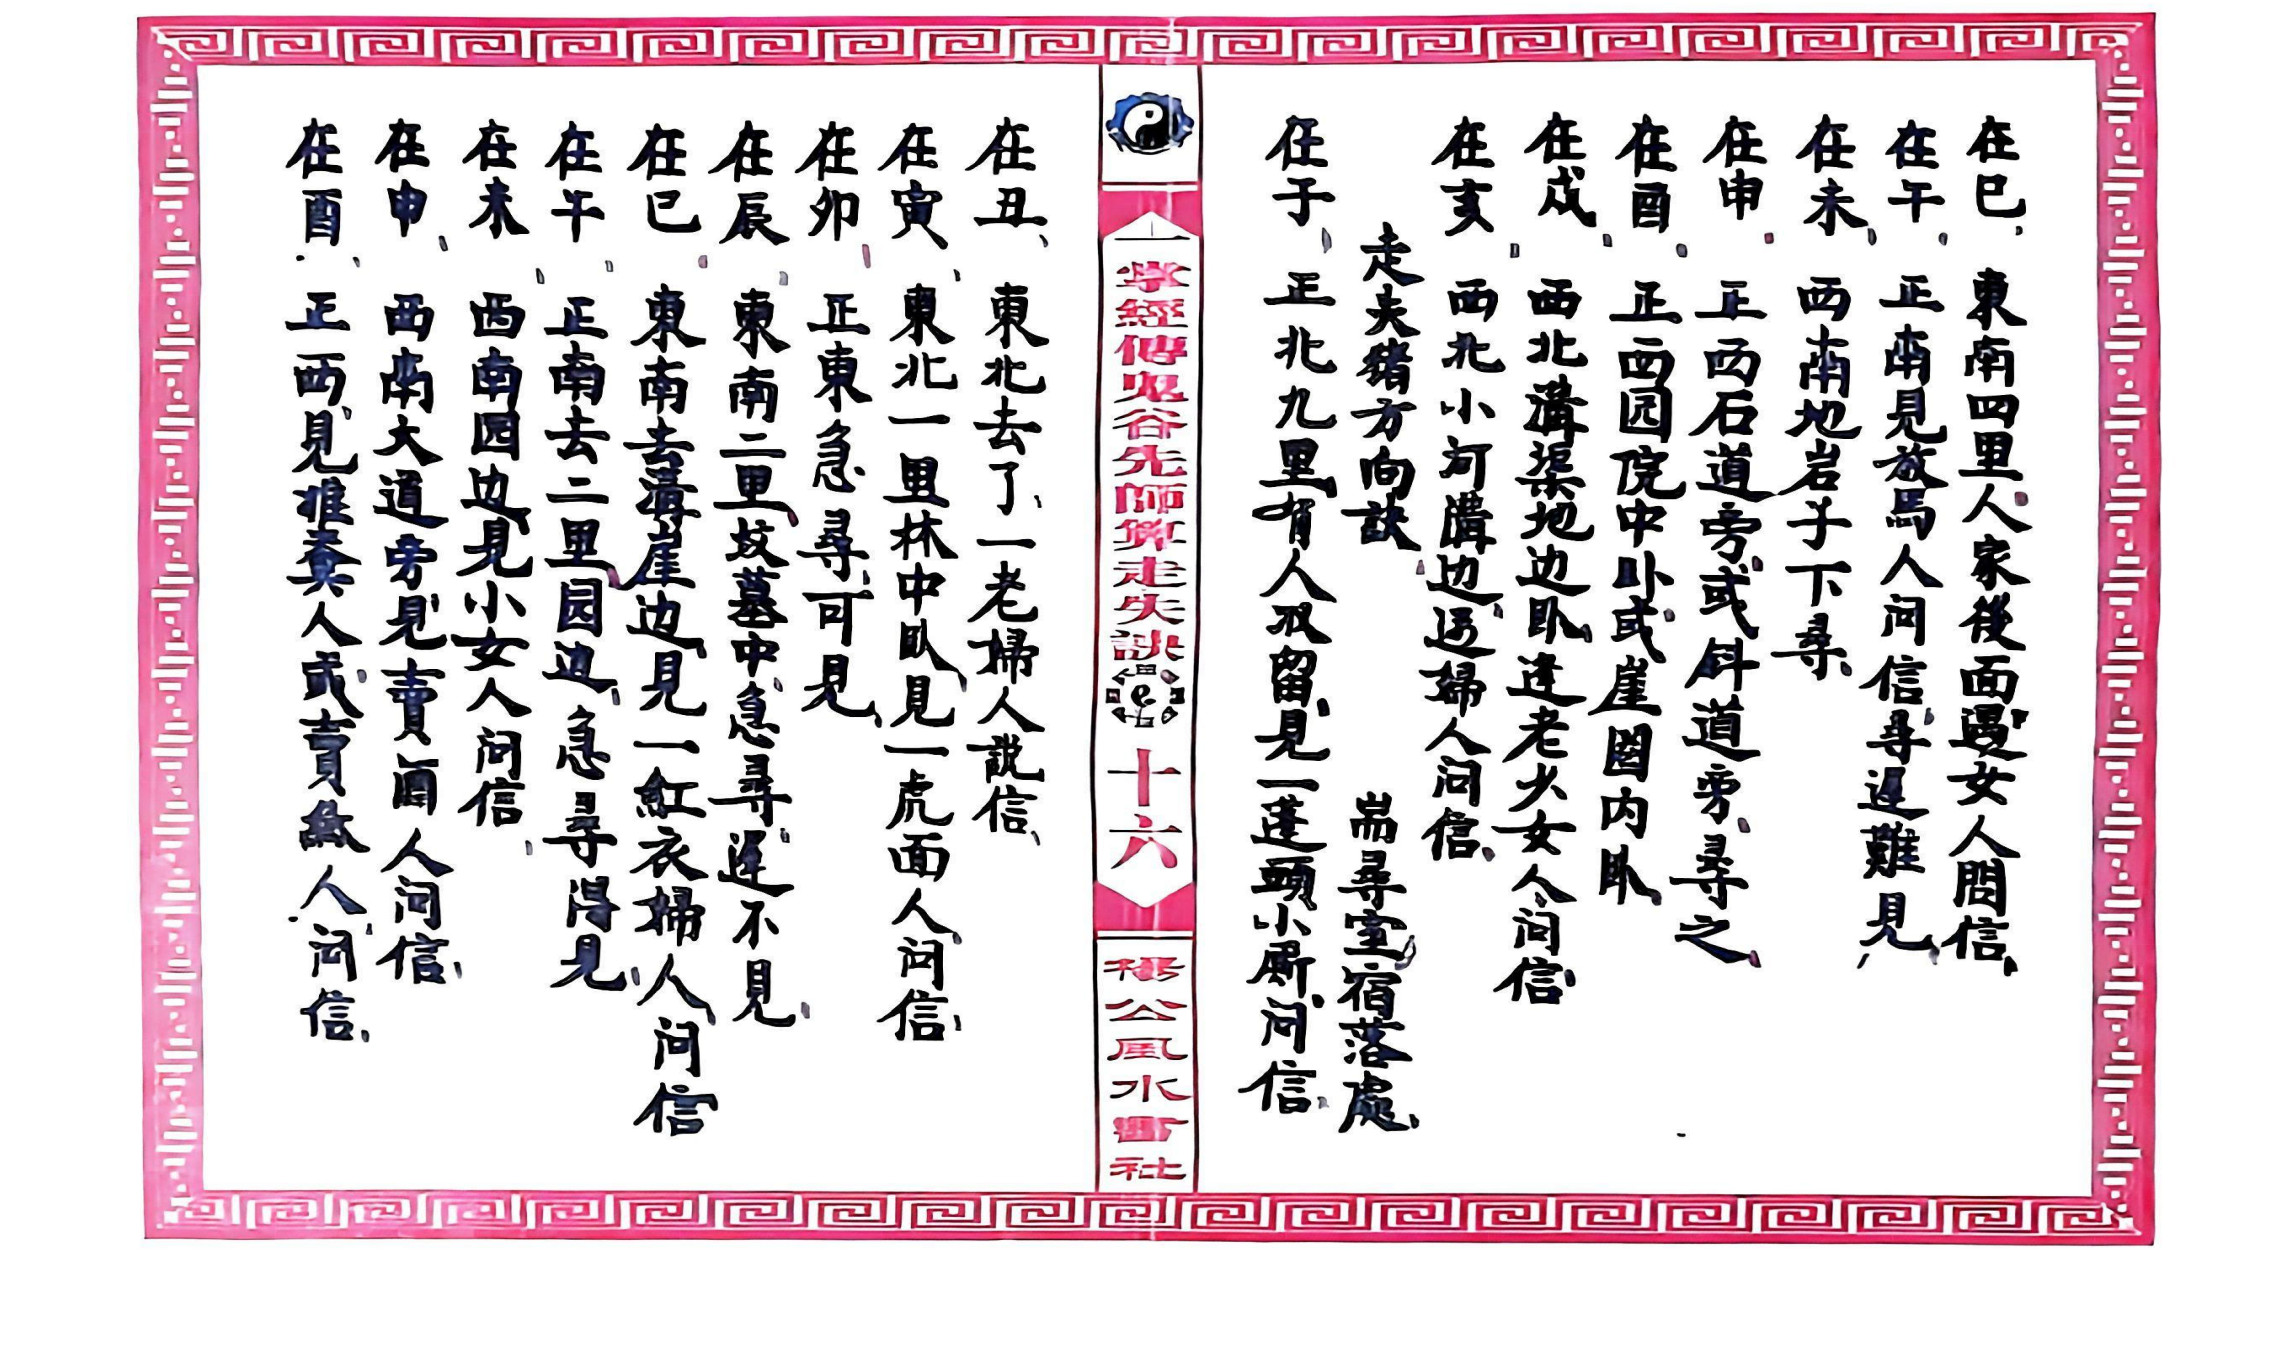 在巳、東南四里人家後面遇女人問信、
在午、正南見放馬人问信、尋遲難見、
在未、西南地岩子下尋、
在申、正西石道旁、或斜道旁、尋之、
在酉、正西园院中卧、或崖圈内卧、
在戌、西北溝渠地边卧、逢老少女人问信、
在亥、西北小河溝边、遇婦人问信、
走失猪方向訣、 耑尋室宿落處、
在子、正北九里、有人收留、見一蓬頭小厮、问信、
一掌經傳鬼谷先師算走失訣
十六
楊公風水書社
在丑、東北去了、一老婦人説信、
在寅、東北一里林中卧、見一虎面人、问信、
在卯、正東急尋、可見、
在辰、東南二里、坟墓中、急尋、遲不見、
在巳、東南去溝崖边、見一紅衣婦人、问信
在午、正南去二里、园边、急尋得見、
在未、西南园边、見小女人问信、
在申、西南大道旁、見賣酒人问信、
在酉、正西、見推糞人、或賣魚人、问信、